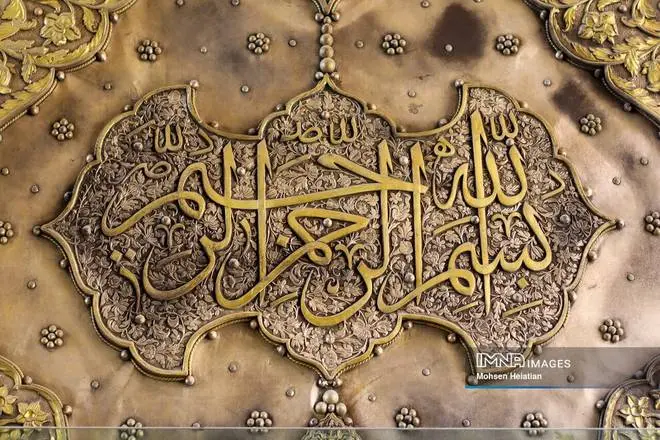 بسم الله الرحمن الرحیم
IMNA IMAGES
Mohsen Heiatian